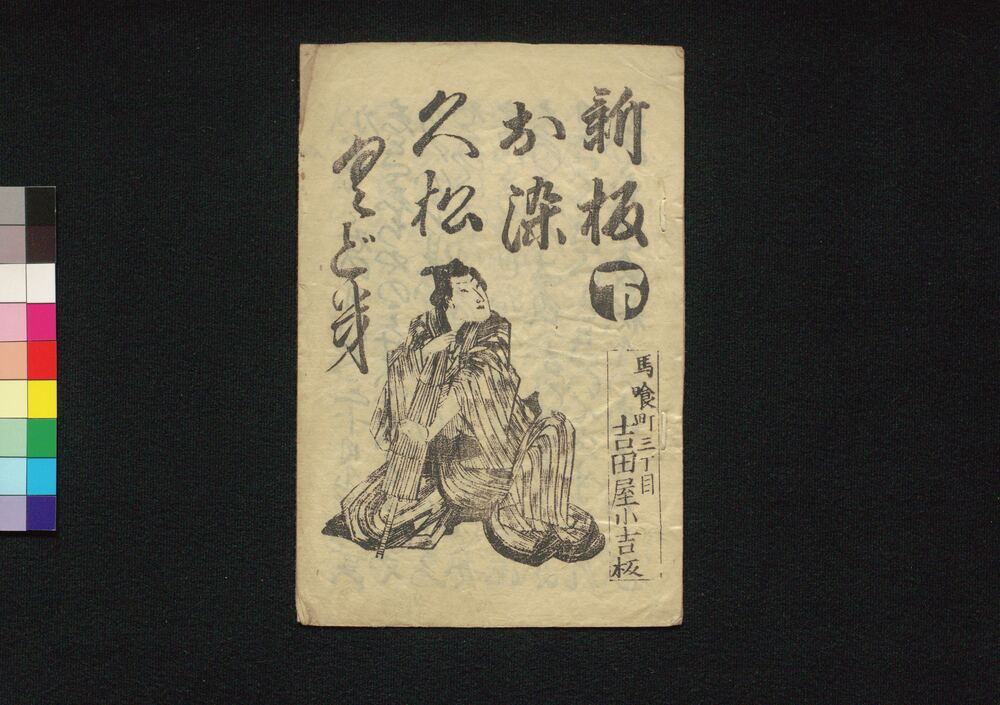 新板下
お染
久松
くどき
馬喰町三丁目
吉田屋小吉板